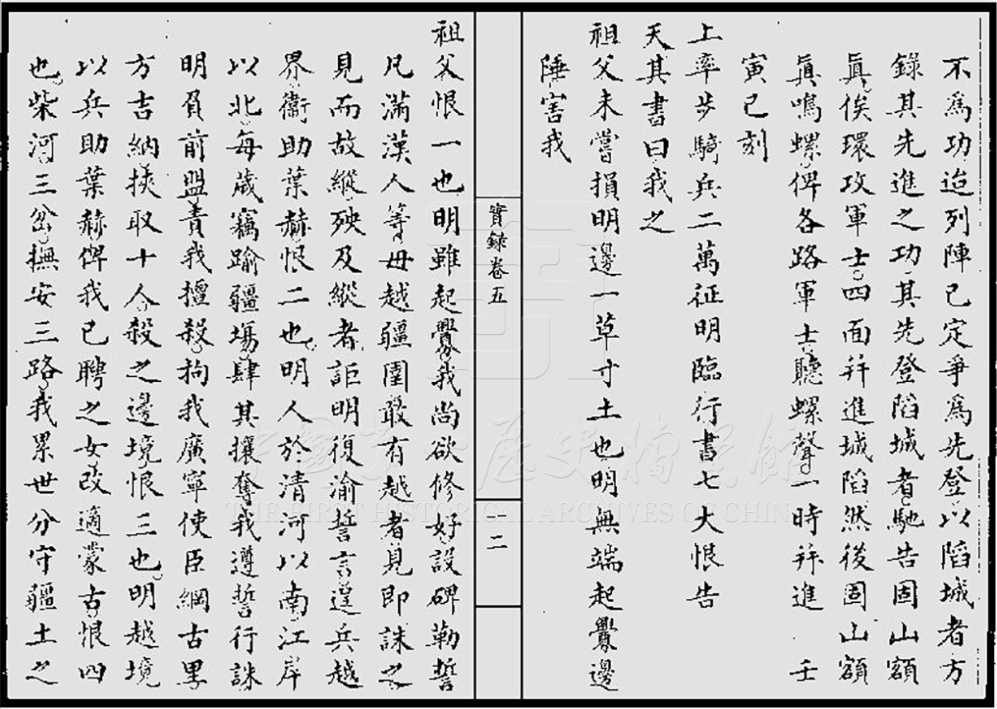 不為功迨列陣已定爭為先登以䧟城者方
錄其先進之功其先登䧟城者馳告固山額
眞俟環攻軍士四面幷進城䧟然後固山額
眞鳴螺俾各路軍士聽螺聲一時幷進 壬
寅巳刻
上率步騎兵二萬征明臨行書七大恨告
天其書曰我之
祖父未嘗損明邊一草寸土也明無端起釁邊
陲害我
實錄卷五
二
祖父恨一也明雖起釁我尚欲修好設碑勒誓
凡滿漢人等毋越疆圉敢有越者見即誅之
見而故縱殃及縱者詎明復渝誓言逞兵越
界衞助葉赫恨二也明人於清河以南江岸
以北每歲竊踰疆埸肆其攘奪我遵誓行誅
明負前盟責我擅殺拘我廣寧使臣綱古里
方吉納挾取十人殺之邊境恨三也明越境
以兵助葉赫俾我已聘之女改適蒙古恨四
也柴河三岔撫安三路我累世分守疆土之
中國第一歷史檔案館
THE FIRST HISTORICAL ARCHIVES OF CHINA